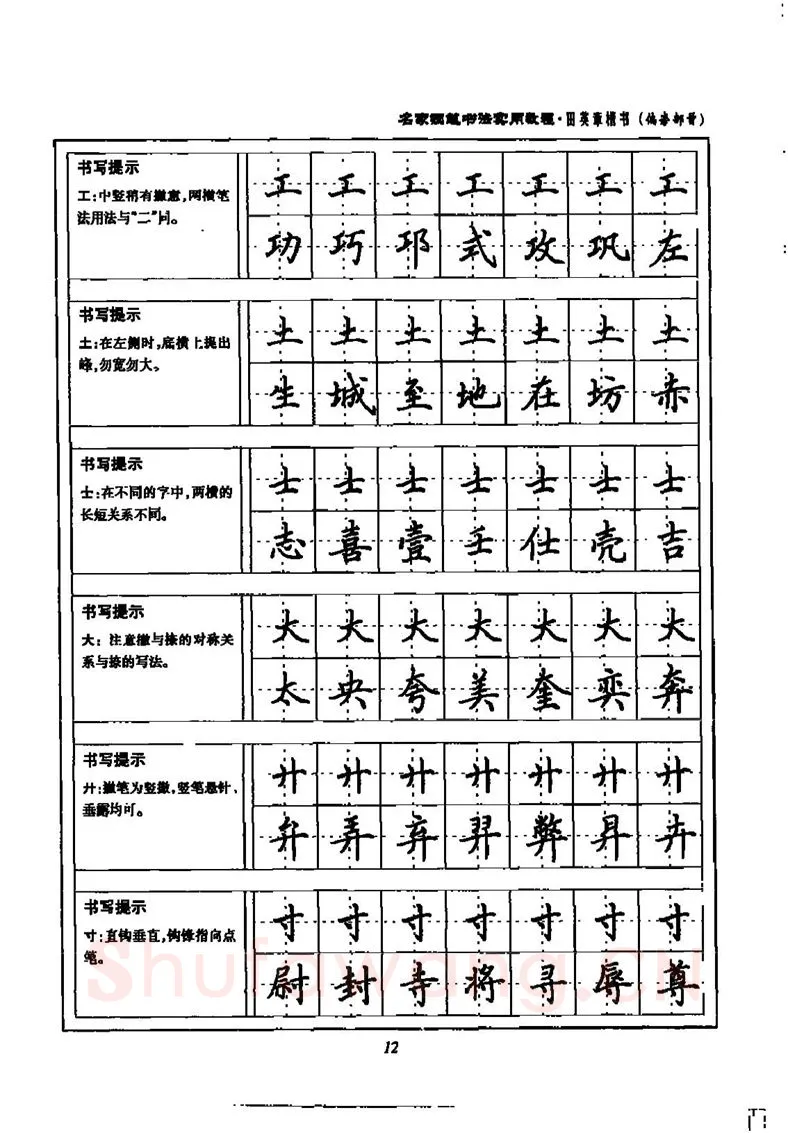 名家钢笔书法实用教程·田英章楷书(偏旁部首)
书写提示
工:中竖稍有撇意,两横笔
法用法与“二”同。
工 工 工 工 工 工 工
功 巧 邛 式 攻 巩 左
书写提示
土:在左侧时,底横上提出
峰,勿宽勿大。
土 土 土 土 土 土 土
生 城 至 地 在 坊 赤
书写提示
士:在不同的字中,两横的
长短关系不同。
士 士 士 士 士 士 士
志 喜 壹 壬 仕 壳 吉
书写提示
大:注意撇与捺的对称关
系与捺的写法。
大 大 大 大 大 大 大
太 央 夸 美 奎 奕 奔
书写提示
廾:撇笔为竖撇,竖笔悬针、
垂露均可。
廾 廾 廾 廾 廾 廾 廾
弁 弄 弃 羿 弊 昇 卉
书写提示
寸:直钩垂直,钩锋指向点
笔。
寸 寸 寸 寸 寸 寸 寸
尉 封 寺 将 寻 辱 尊
Shufawang.CN
12